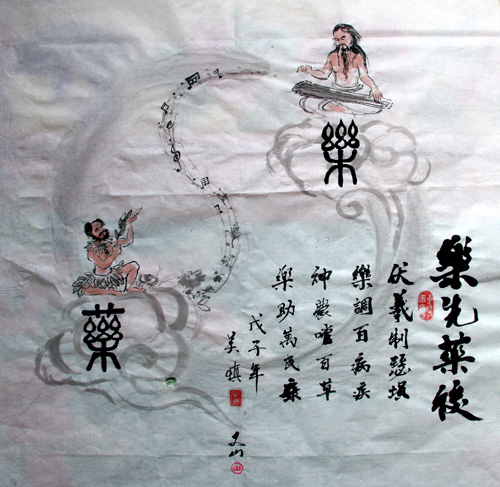 樂
藥
樂先藥後
伏羲制瑟塤
樂調百病疾
神農嚐百草
樂助萬民康
戊子年
文山